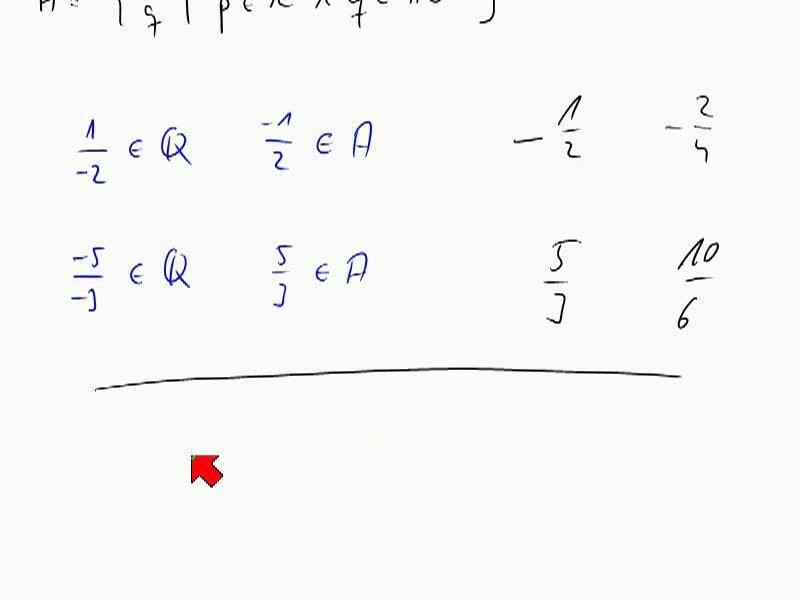 1/-2 ∈ ℚ -1/2 ∈ A - 1/2 - 2/4
-5/-3 ∈ ℚ 5/3 ∈ A 5/3 10/6